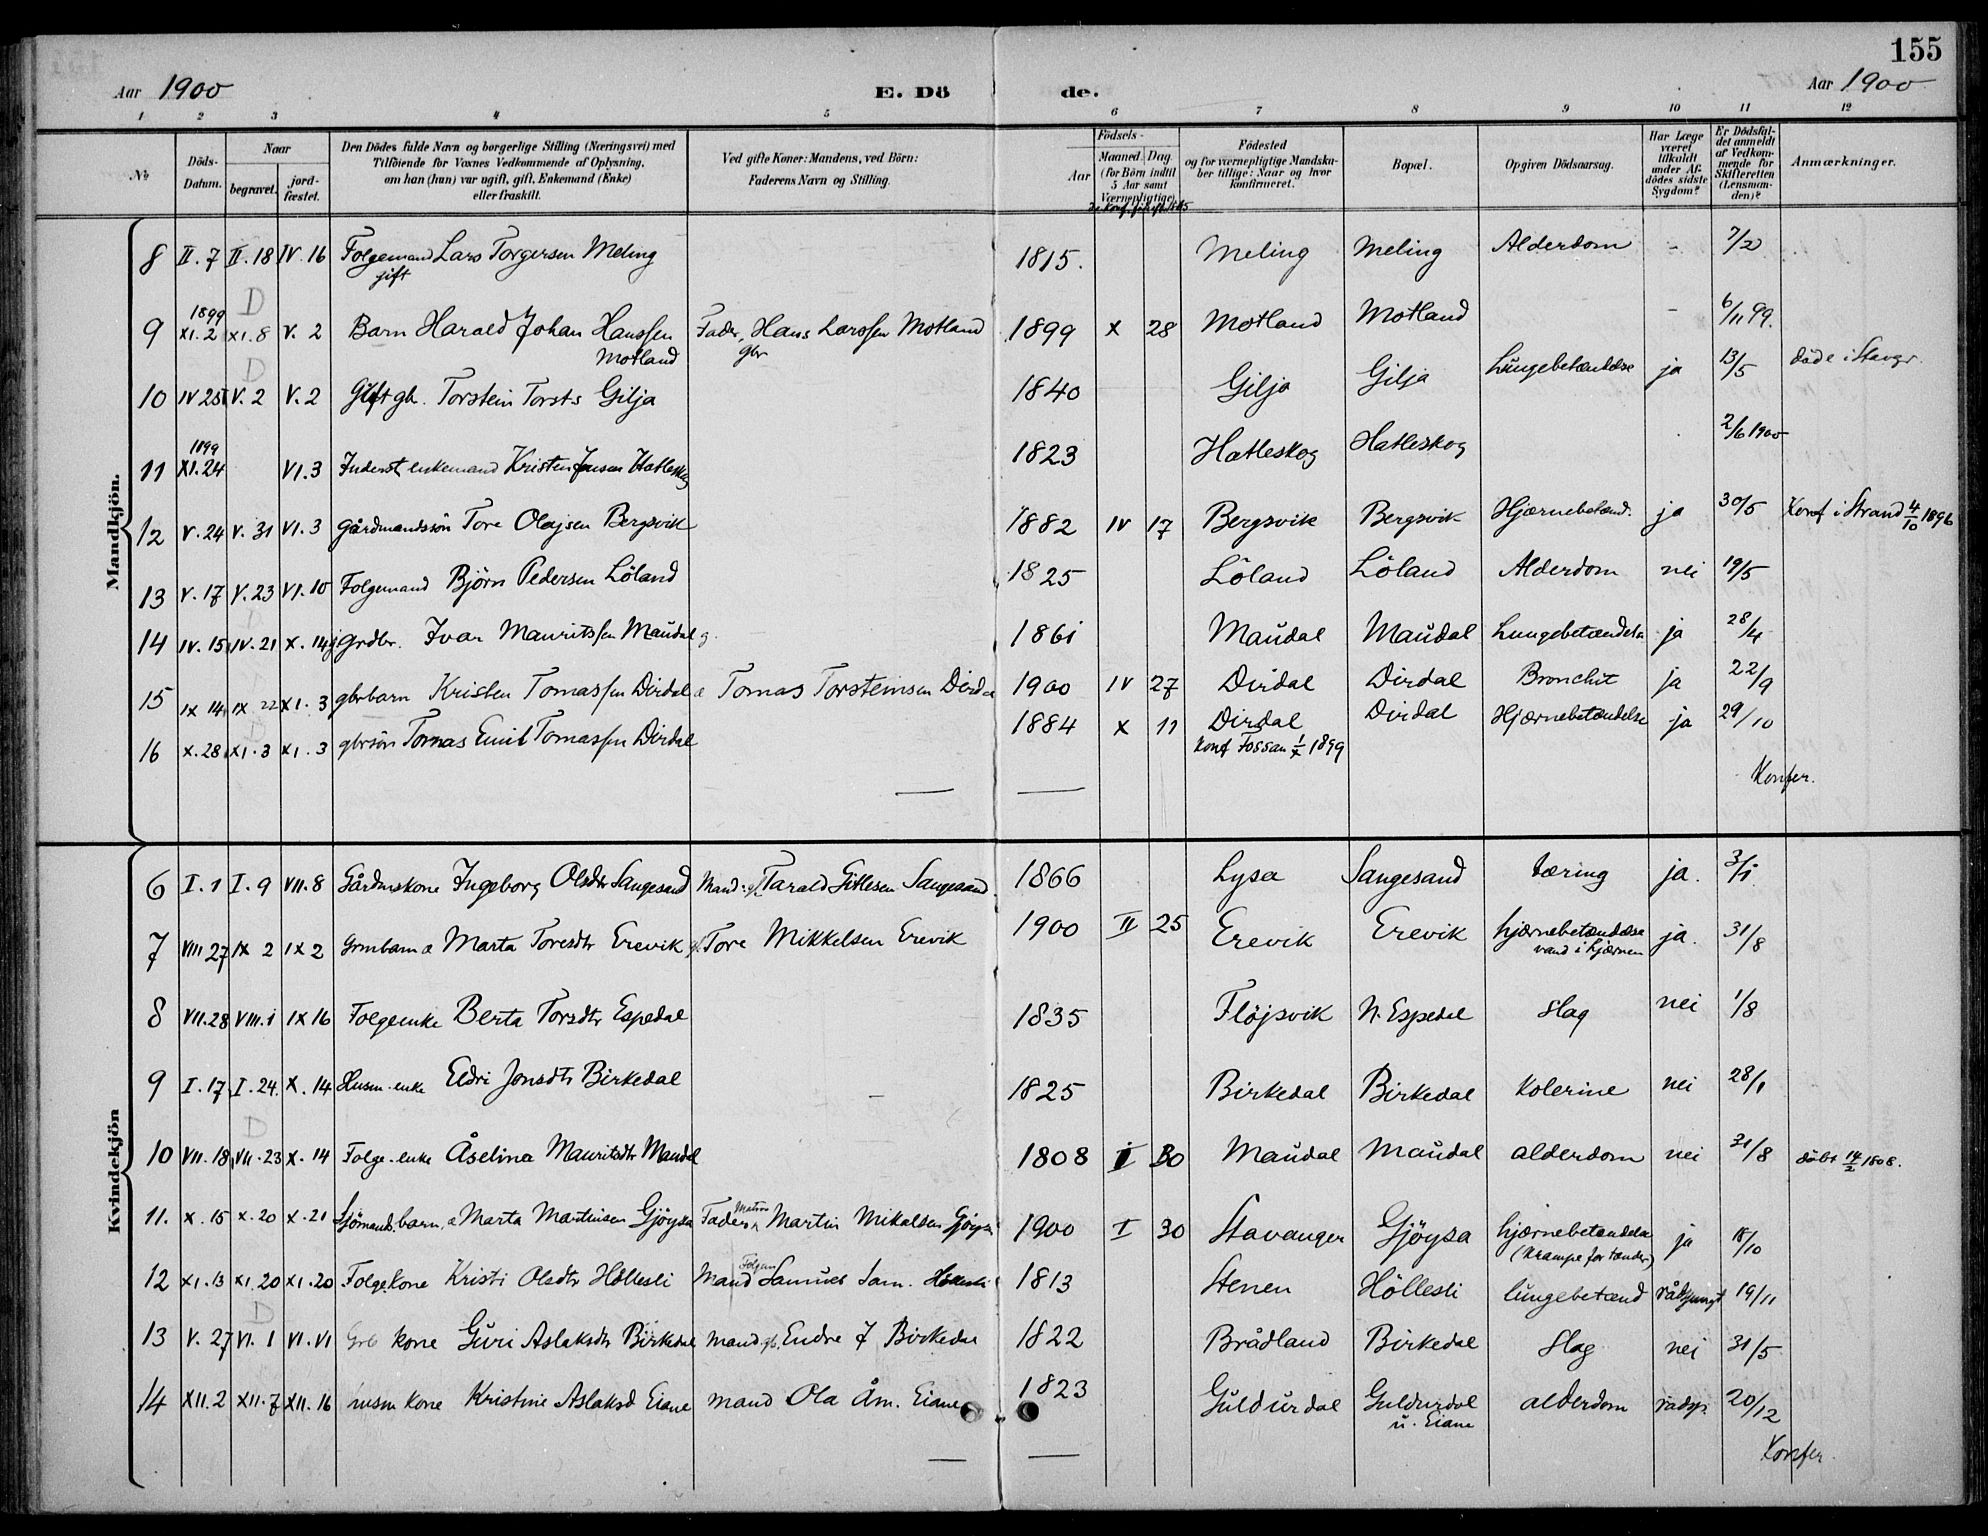 155
Aar 1900 E. Dö de. Aar 1900
1 2 3 4 5 6 7 8 9 10 11 12
No
Döds-Datum.
Naar
begravet.
jord-fæstet.
Den Dödes fulde Navn og borgerlige Stilling (Næringsvei) med
Tilföiende for Voxnes Vedkommende af Oplysning,
om han (hun) var ugift, gift, Enkemand (Enke)
eller fraskilt.
Ved gifte Koner: Mandens, ved Börn:
Faderens Navn og Stilling.
Födsels-
Aar
Maaned. Dag.
(for Börn indtil
5 Aar samt
Værnepligtige)
Födested
og for værnepligtige Mandska-
ber tillige: Naar og hvor
konfirmeret.
Bopæl.
Opgiven Dödsaarsag.
Har Læge
været
tilkaldt
under Af-
dödes sidste
Sygdom?
Er Dödsfal-
det anmeldt
af Vedkom-
mende for
Skifteretten
(Lensman-
den)?
Anmærkninger.
Mandkjön.
8 II. 7 II. 18 IV. 16 Folgemand Lars Torgersen Meling 1815. Meling Meling Alderdom - 7/2
gift
D
1899
9 XI. 2 XI. 8 V. 2 Barn Harald Johan Hanssen Fader, Hans Larssen Motland 1899 X 28 Motland Motland - 6/11 99.
Motland gbr
D
10 IV 25 V. 2 V. 2 Gift gb. Torstein Torsts Gilja 1840 Gilja Gilja Lungebetændelse ja 13/5 döde i Stavgr.
1899
11 XI. 24 VI. 3 Inderst enkemand Kristen Jonsen Hatleskog 1823 Hatleskog Hatleskog 2/6 1900
12 V. 24 V. 31 VI. 3 Gårdmandssön Tore Olajsen Bergsvik 1882 IV 17 Bergsvik Bergsvik Hjærnebetænd. ja 30/5 Konf i Strand 4/10 1896
13 V. 17 V. 23 VI. 10 Folgemand Björn Pedersen Löland 1825 Löland Löland Alderdom nei 19/5
14 IV. 15 IV. 21 X. 14 grdbr. Ivar Mauritssen Maudal g. 1861 Maudal Maudal Lungebetændelse ja 28/4
15 IX 14 IX 22 XI. 3 gbrbarn Kristen Tomassen Dirdal Tomas Torsteinsen Dirdal 1900 IV 27 Dirdal Dirdal Bronchit ja 22/9
16 X. 28 XI. 3 XI. 3 gbrsön Tomas Emil Tomassen Dirdal 1884 X 11 Dirdal Dirdal Hjærnebetændelse ja 29/10
konf Fossan 1899
Konfer.
Kvindekjön
6 I. 1 I. 9 VII. 8 Gårdmskone Ingeborg Olsdtr Sangesand Mand: Tarald Gitlesen Sangesand 1866 Lysa Sangesand tæring ja. 3/1
7 VIII 27 IX 2 IX 2 Grmbarn Marta Toresdtr Erevik Tore Mikkelsen Erevik 1900 II 25 Erevik Erevik hjærnebetændelse ja. 31/8
vand i hjærnen
8 VII. 28 VIII. 1 IX 16 Folgeenke Berta Torsdtr Espedal 1835 Flöjsvik N. Espedal Slag nei 1/8
9 I. 17 I. 24. X. 14 Husm. enke Eldri Jonsdtr Birkedal - 1825 Birkedal Birkedal Kolerine nei 28/1
D
10 VII. 18 VII. 23 X. 14 Folge-enke Åselina Mauritsdtr Maudal 1808 I 30 Maudal Maudal alderdom nei 31/8 döbt 14/2 1808.
11. X. 15 X. 20 X. 21 Sjömands. barn, Marta Martinsen Gjöysa Fader Matros Martin Mikalsen Gjöysa 1900 I 30 Stavanger Gjöysa hjærnebetændelse ja 18/10
(Krampe for tænder)
12 XI. 13 XI. 20 XI. 20 Folgekone Kristi Olsdtr Höllesli Mand Samuel Sam. Höllesli 1813 Stenen Höllesli lungebetænd rådspurgt 19/11
D
13 V. 27 VI. 1 VI. VI kone Guri Aslaksdtr Birkedal mand gb. Endre J Birkedal 1822 Brådland Birkedal Slag nei 31/5
14 XII. 2 XII. 7 XII. 16 husm kone Kristine Aslaksd Eiane mand Ola Åm. Eiane 1823 Guldurdal Guldurdal alderdom rådsp. 20/12
u. Eiane
Konfer.